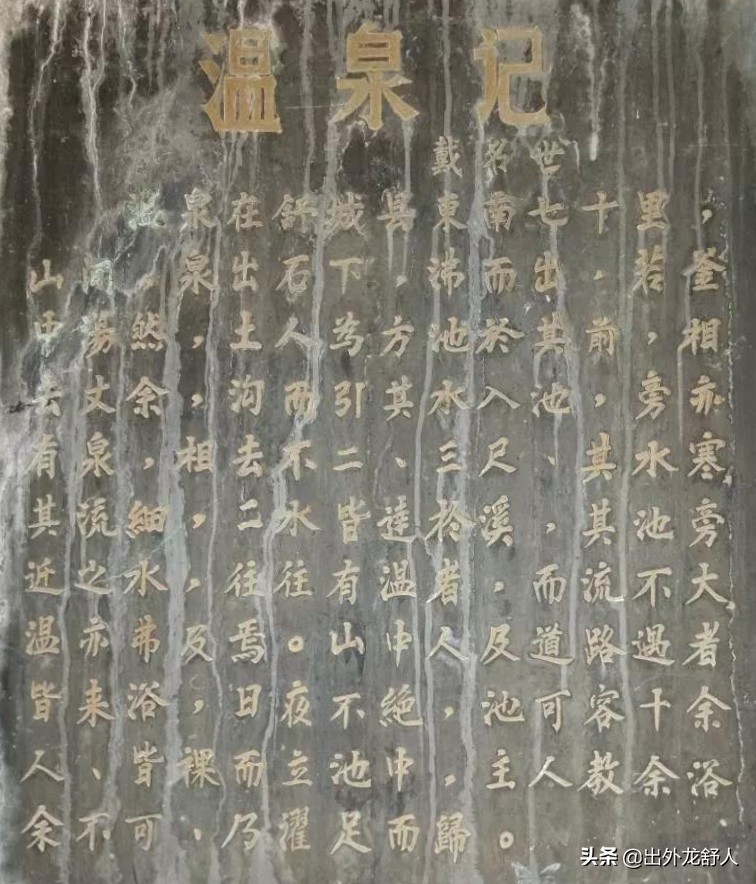 温泉记
戴名世
温泉在舒城县東南七十里，
山间，泉出石下，沸而出，若釜
中湯然，土人為方池於其前，相
去丈余，沟而引其水入池，旁亦
有泉，相去不二、三尺、其水寒
其流細，二水皆達於溪，其池旁
近之水，往往有温者，而流不大
温亦弗及焉。山中人及道路遇者
皆来浴，日夜不絶，池可容十余
人、皆裸而立池中，主人教余浴
余不可、乃濯足而歸。
头条 @出外龙舒人